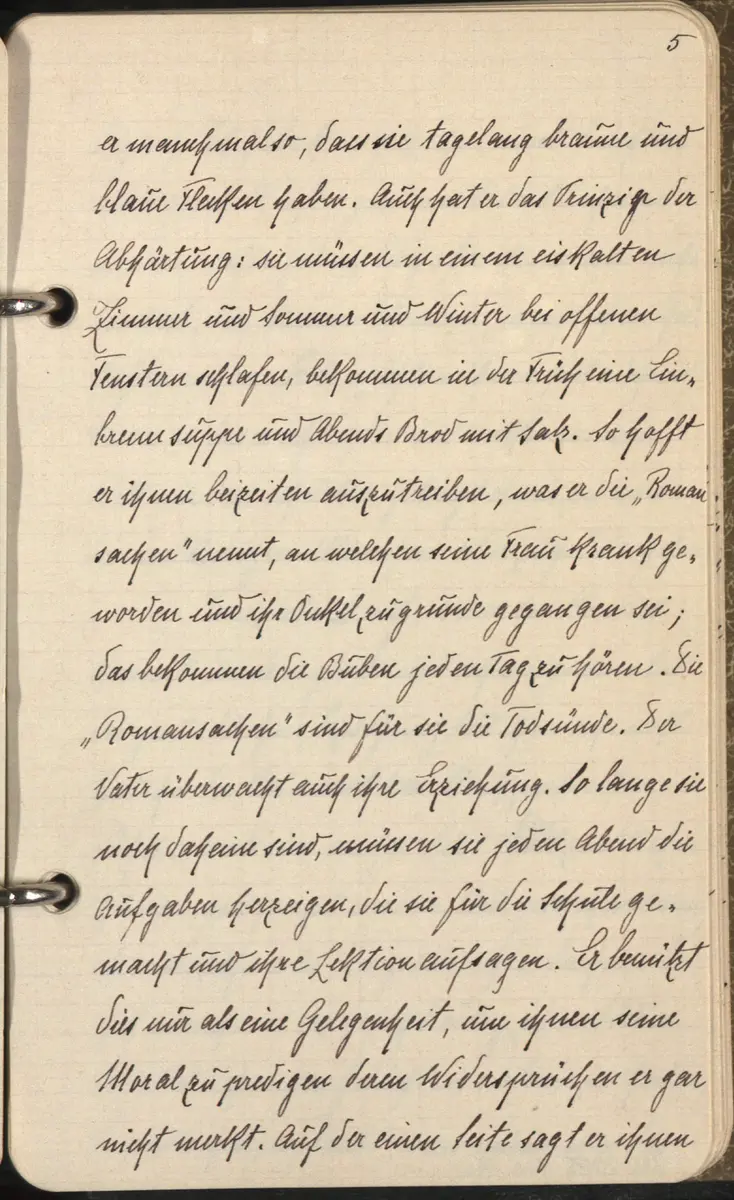 5
er manchmal so, dass sie tagelang braune und
blaue Flecken haben. Auch hat er das Prinzip der
Abhärtung: sie müssen in einem eiskalten
Zimmer und Sommer und Winter bei offenen
Fenstern schlafen, bekommen in der Früh eine Ein-
brennsuppe und Abends Brod mit Salz. So hofft
er ihnen beizeiten auszutreiben, was er die „Roman
sachen" nennt, an welchen seine Frau krank ge-
worden und ihr Onkel zugrunde gegangen sei;
das bekommen die Buben jeden Tag zu hören. Die
„Romansachen" sind für sie die Todsünde. Der
Vater überwacht auch ihre Erziehung. So lange sie
noch daheim sind, müssen sie jeden Abend die
Aufgaben herzeigen, die sie für die Schule ge-
macht und ihre Lektion aufsagen. Er benützt
dies nur als eine Gelegenheit, um ihnen seine
Moral zu predigen deren Widersprüchen er gar
nicht merkt. Auf der einen Seite sagt er ihnen